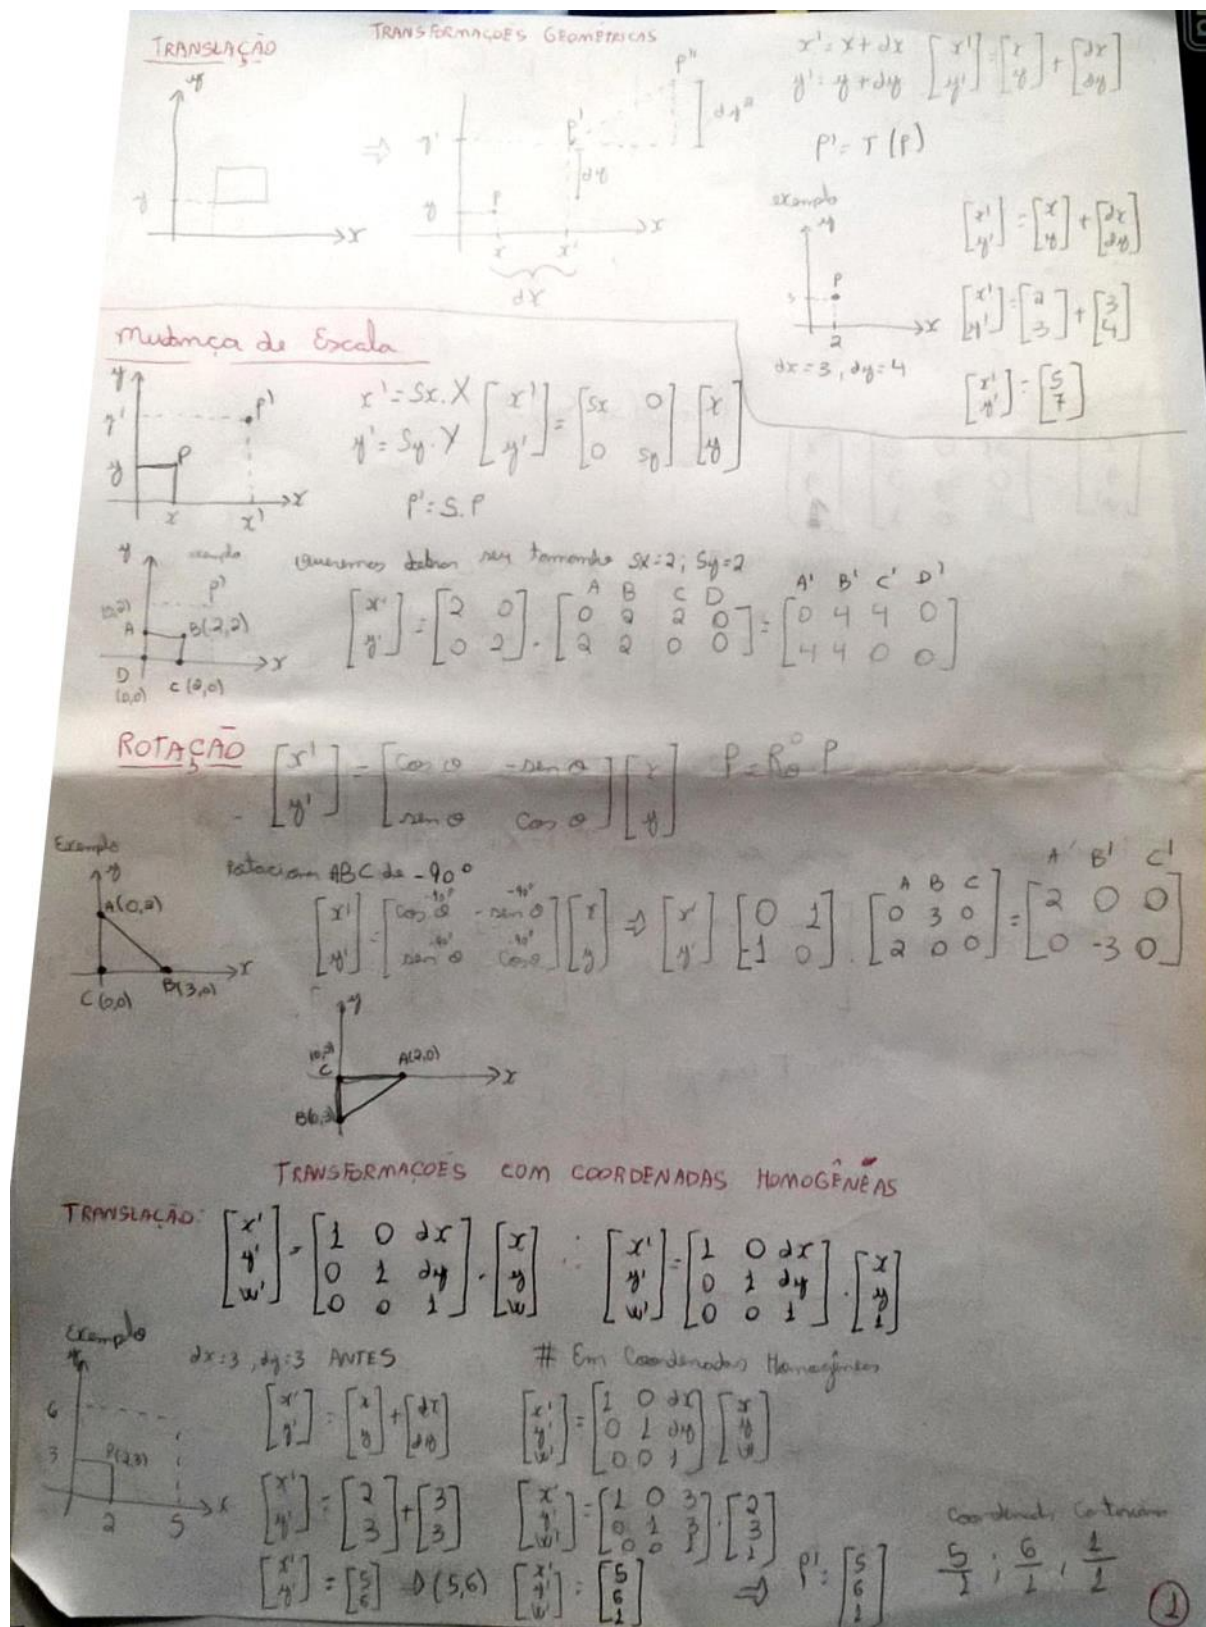 TRANSFORMAÇÕES GEOMÉTRICAS
TRANSLAÇÃO
y
y
x
⇒
y'
y
P
P'
P''
dy
dy²
x
x'
x
dx
x' = x + dx [x' y'] = [x y] + [dx dy]
y' = y + dy
P' = T (P)
exemplo
y
P
3
2
x
dx = 3, dy = 4
[x' y'] = [x y] + [dx dy]
[x' y'] = [2 3] + [3 4]
[x' y'] = [5 7]
Mudança de Escala
y
y'
y
P
P'
x
x'
x
x' = Sx . X
y' = Sy . Y
[x' y'] = [Sx 0 0 Sy] . [x y]
P' = S . P
exemplo
y
P'
A
B(2,2)
D
(0,0)
C (2,0)
x
Queremos dobrar seu tamanho Sx=2; Sy=2
A B C D
A' B' C' D'
[x' y'] = [2 0 0 2] . [0 2 2 0 2 2 0 0] = [0 4 4 0 4 4 0 0]
ROTAÇÃO
[x' y'] = [cos θ -sen θ sen θ cos θ] [x y]
Exemplo
y
A(0,2)
C (0,0)
B(3,0)
x
Rotacionar ABC de -90°
[x' y'] = [cos θ -sen θ sen θ cos θ] [x y]
-90° -90° -90° -90°
⇒ [x' y'] [0 1 -1 0] . [0 3 0 2 0 0] = [2 0 0 0 -3 0]
A B C
A' B' C'
y
C
A(2,0)
x
TRANSFORMAÇOES COM COORDENADAS HOMOGÊNEAS
TRANSLAÇÃO: [x' y' w'] = [1 0 dx 0 1 dy 0 0 1] . [x y w] ∴ [x' y' w'] = [1 0 dx 0 1 dy 0 0 1] . [x y 1]
Exemplo
y
6
3
P(2,3)
2
5
x
dx=3, dy=3 ANTES
[x' y'] = [x y] + [dx dy]
[x' y'] = [2 3] + [3 3]
[x' y'] = [5 6] ⇒ (5,6)
# Em Coordenadas Homogêneas
[x' y' w'] = [1 0 dx 0 1 dy 0 0 1] . [x y w]
[x' y' w'] = [1 0 3 0 1 3 0 0 1] . [2 3 1]
[x' y' w'] = [5 6 1] ⇒ P' = [5 6 1]
5/1 ; 6/1 , 1/1
1